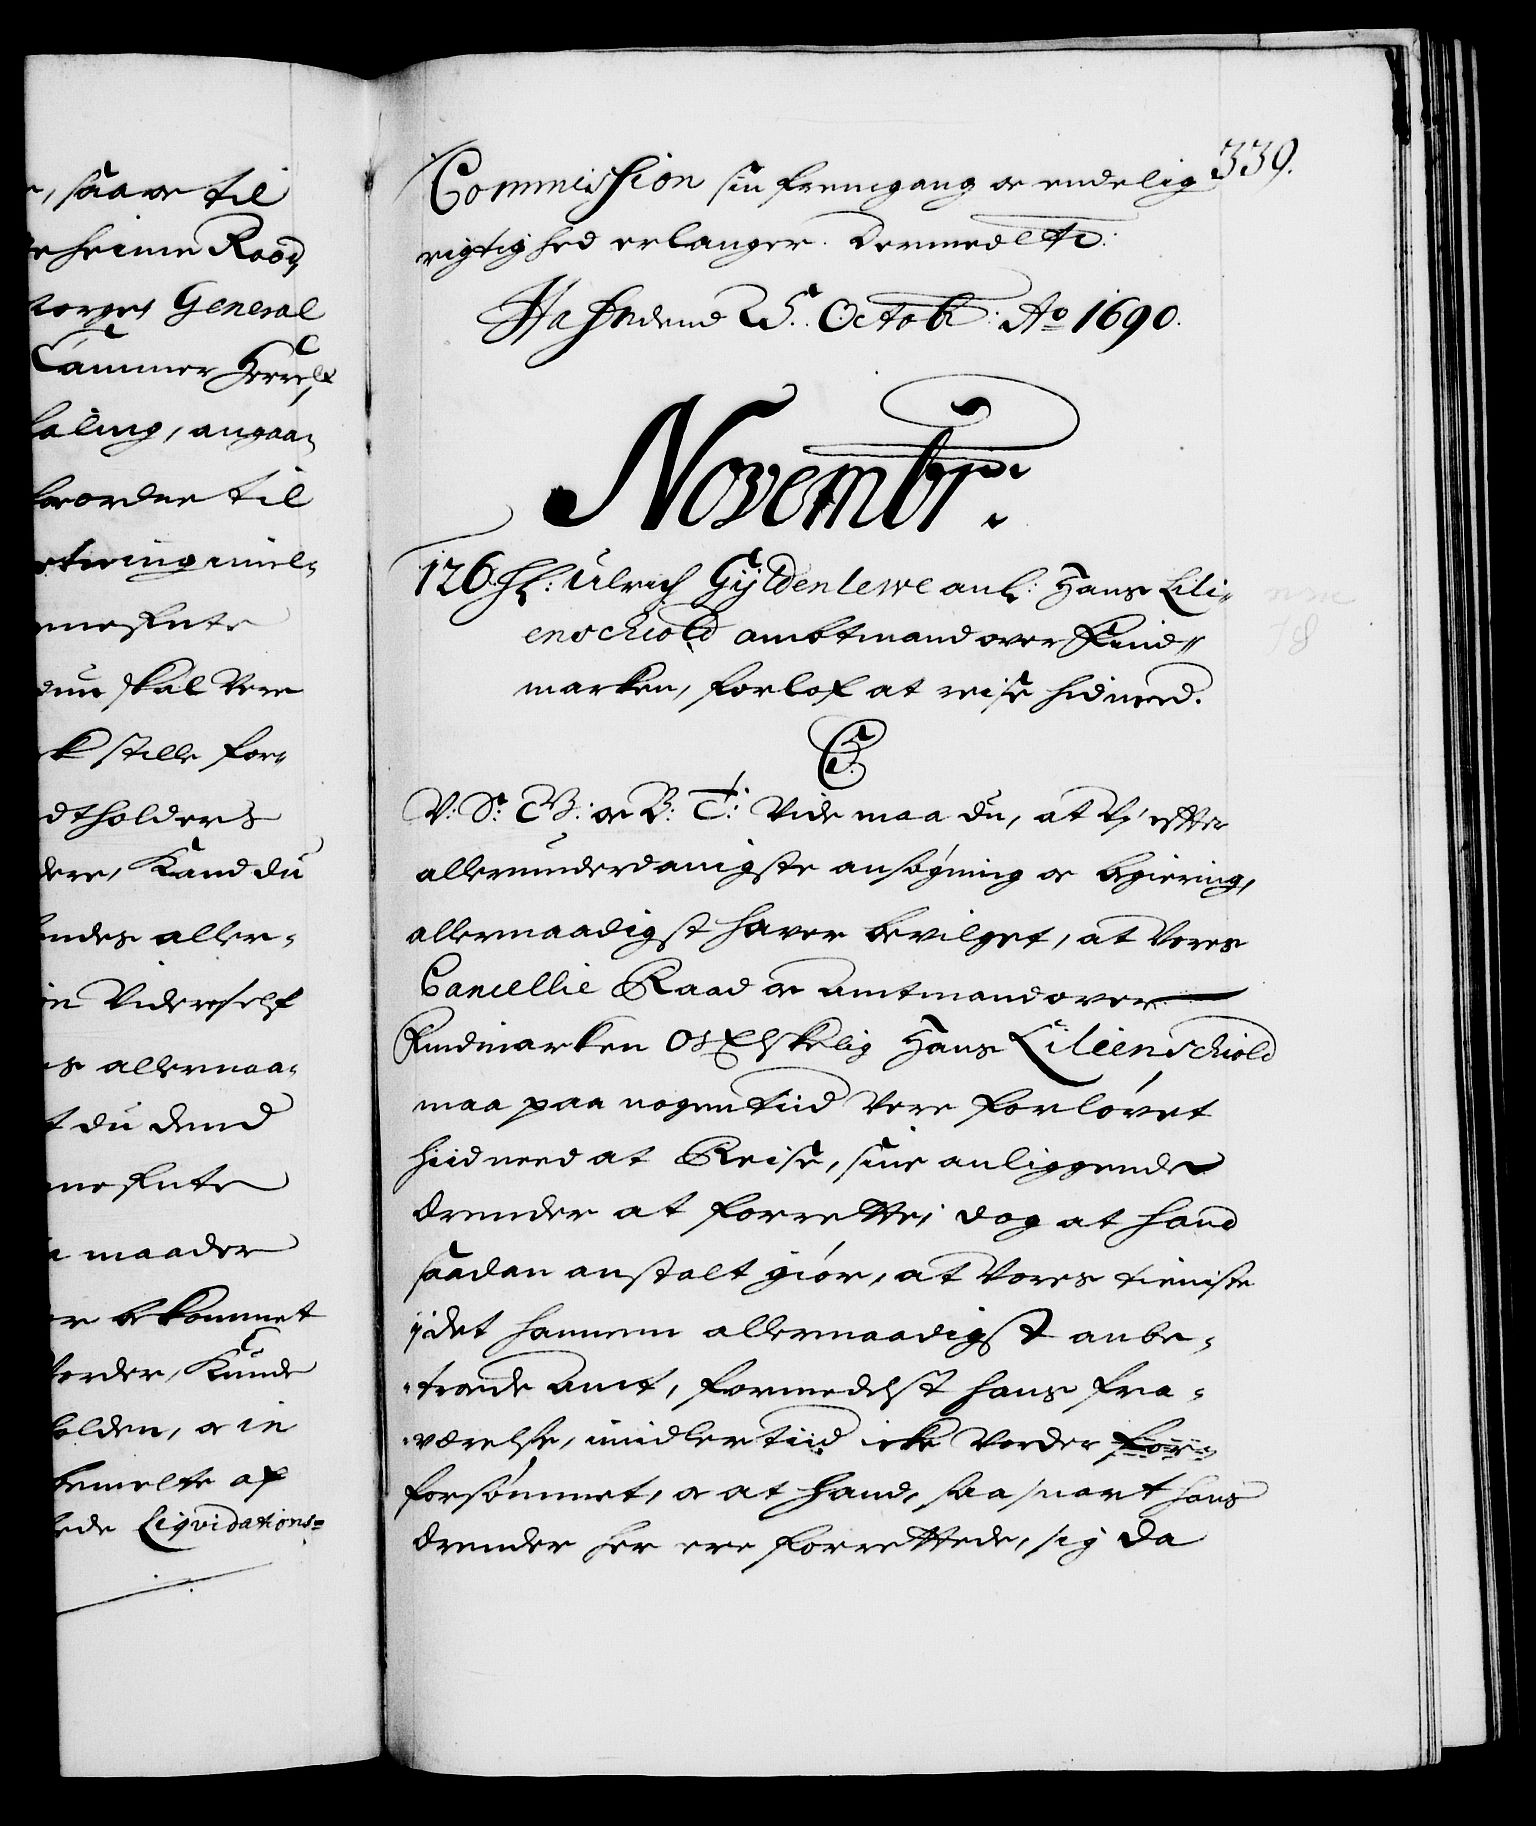 , saa og til
heime Raad,
torges General
Cammer Herre,
taling, angaa„
beordne til
tering imel„
skal Vere
stille for„
dtholders
dere, Kand du
andes aller„
Videre self
allernaa„
t du dend
maader
bekommet
vorder, Kunde
holden, og i
bemelte af
Liqvidations„
339.
Commission sin fremgang og endelig
rigtighed erlanger. Dermed etc:
Hafn dend 25. Octobr: Ao 1690.
Novembr:
126. H: Ulrich Gyldenlewe anl: Hans Lili„
enschiold ambtmand over Find„
marken, forlof at reise hid need.
C5.
V: S: G: og B: T: Vide maa du, at Vj efter
allerunderdanigste ansøgning og begiering,
allernaadigst haver bevilget, at Vores
Cancellie Raad og Amtmand over
Findmarken Os Elskelig Hans Lilienschiold
maa paa nogen tiid Vere forløvet
hiid need at Reise, sine anliggende
Ærender at forrette; dog at hand
saadan anstalt giør, at Vores tieniste
ij det hannem allernaadigst anbe„
„troede Amt, formedelst hans fra„
„værelse, imidlertiid icke Vorder for„
forsømmet, og at hand, saa snart hans
Ærender her ere forrettede, sig da